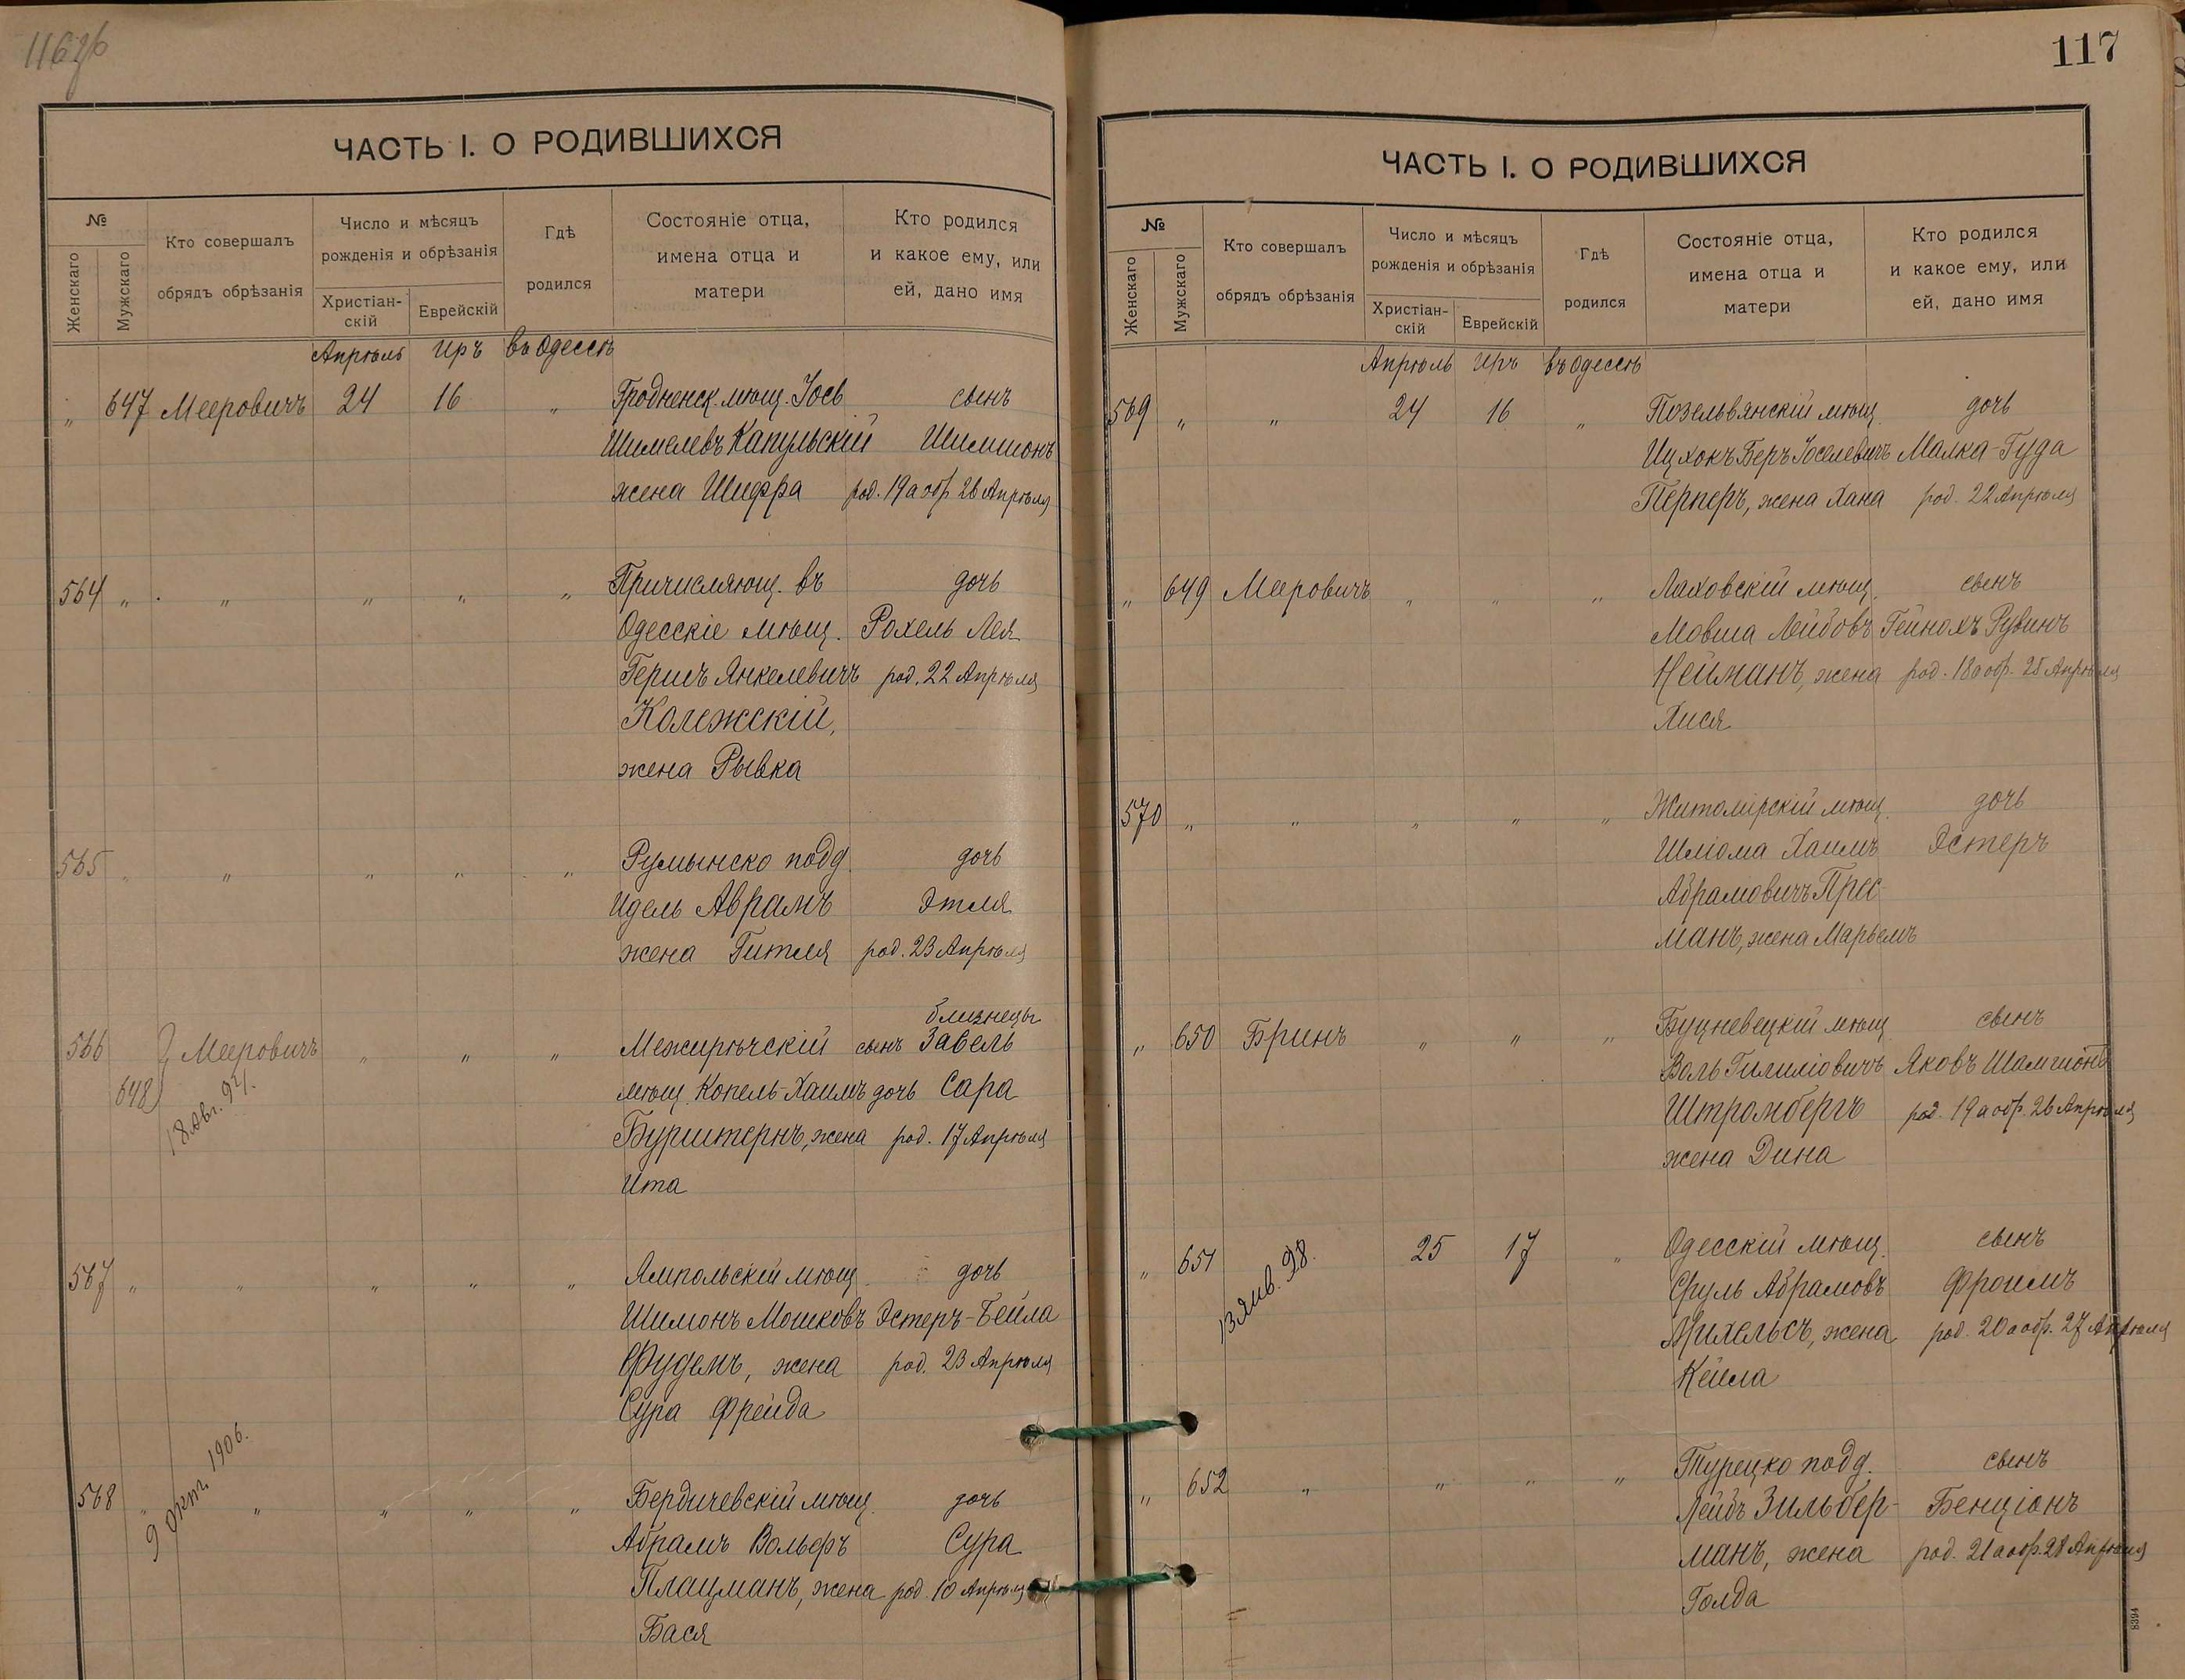 116об
ЧАСТЬ I. О РОДИВШИХСЯ
№
Женскаго
Мужскаго
Кто совершалъ
обрядъ обрѣзанія
Число и мѣсяцъ
рожденія и обрѣзанія
Христіан-
скій
Еврейскій
Гдѣ
родился
Состояніе отца,
имена отца и
матери
Кто родился
и какое ему, или
ей, дано имя
Апрѣль Иръ въ Одессѣ
„ 647 Мееровичъ 24 16 „ Гродненск. мѣщ. Іось сынъ
Шимелевъ Капульскій Шимшонъ
жена Шифра род. 19 а обр. 26 Апрѣля
564 „ „ „ „ „ Причисляющ. въ дочь
Одесскіе мѣщ. Рохель Лея
Гершъ Янкелевичъ род. 22 Апрѣля
Колежскій,
жена Рывка
565 „ „ „ „ „ Румынско подд. дочь
Идель Аврамъ Этля
жена Гитля род. 23 Апрѣля
близнецы
566 Мееровичъ „ „ „ Межирѣчскій сынъ Завель
648 18 Авг. 97. мѣщ. Копель-Хаимъ дочь Сара
Бурштернъ, жена род. 17 Апрѣля
Ита
567 „ „ „ „ „ Ямпольскій мѣщ. дочь
Шимонъ Мошковъ Эстеръ-Бейла
Фудемъ, жена род. 23 Апрѣля
Сура Фрейда
9 Окт. 1906.
568 „ „ „ „ „ Бердичевскій мѣщ. дочь
Абрамъ Вольфъ Сура
Плацманъ, жена род. 10 Апрѣля
Бася
117
ЧАСТЬ I. О РОДИВШИХСЯ
№
Женскаго
Мужскаго
Кто совершалъ
обрядъ обрѣзанія
Число и мѣсяцъ
рожденія и обрѣзанія
Христіан-
скій
Еврейскій
Гдѣ
родился
Состояніе отца,
имена отца и
матери
Кто родился
и какое ему, или
ей, дано имя
Апрѣль Иръ въ Одессѣ
569 „ „ 24 16 „ Позельвянскій мѣщ. дочь
Ицхокъ Беръ Іоселевичъ Малка-Гуда
Перперъ, жена Хана род. 22 Апрѣля
„ 649 Мееровичъ „ „ „ Лаховскій мѣщ. сынъ
Мовша Лейбовъ Гейнохъ Рувинъ
Нейманъ, жена род. 18 а обр. 25 Апрѣля
Хися
570 „ „ „ „ „ Житомірскій мѣщ. дочь
Шліома Хаимъ Эстеръ
Абрамовичъ Прес-
манъ, жена Марьемъ
„ 650 Бринъ „ „ „ Буцневецкій мѣщ. сынъ
Воль Гилиліовичъ Яковъ Шамшонъ
Штромбергъ род. 19 а обр. 26 Апрѣля
жена Дина
„ 651 13 Янв. 98. 25 17 „ Одесскій мѣщ. сынъ
Сруль Абрамовъ Фроимъ
Михельсъ, жена род. 20 а обр. 27 Апрѣля
Кейла
„ 652 „ „ „ „ Турецко подд. сынъ
Лейбъ Зильбер- Бенціонъ
манъ, жена род. 21 а обр. 28 Апрѣля
Голда
8394